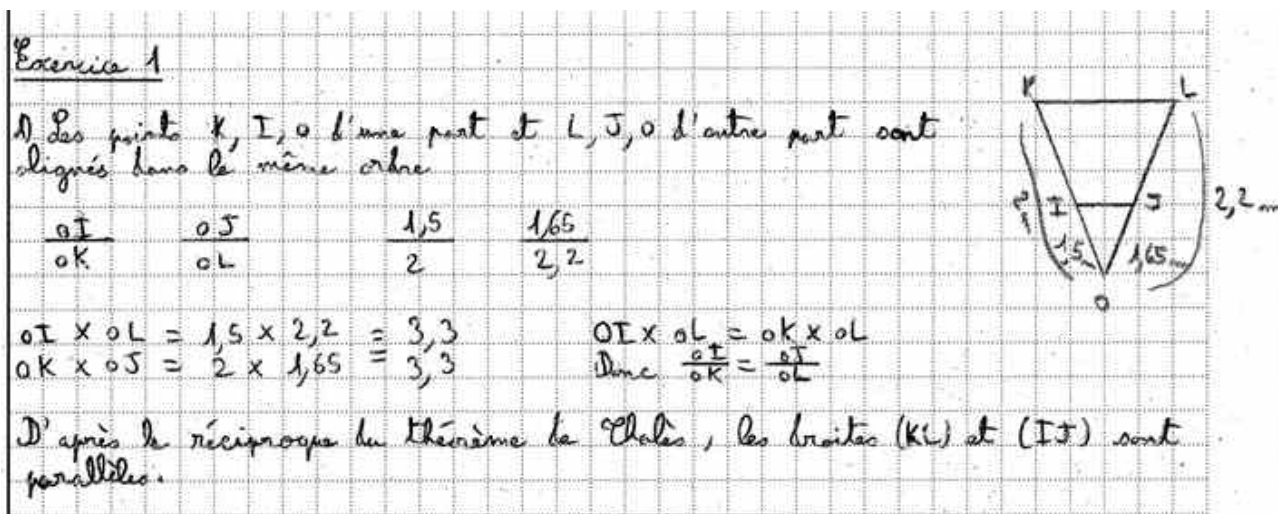 Exercice 1
1) Les points K, I, o d'une part et L, J, o d'autre part sont
alignés dans le même ordre
oI/oK oJ/oL 1,5/2 1,65/2,2
oI x oL = 1,5 x 2,2 = 3,3
oK x oJ = 2 x 1,65 = 3,3
OI x oL = oK x oL
Donc oI/oK = oJ/oL
D'après le réciproque du théorème de Thalès, les droites (KL) et (IJ) sont
parallèles.
K L
2 m I J 2,2 m
1,5 m 1,65 m
O